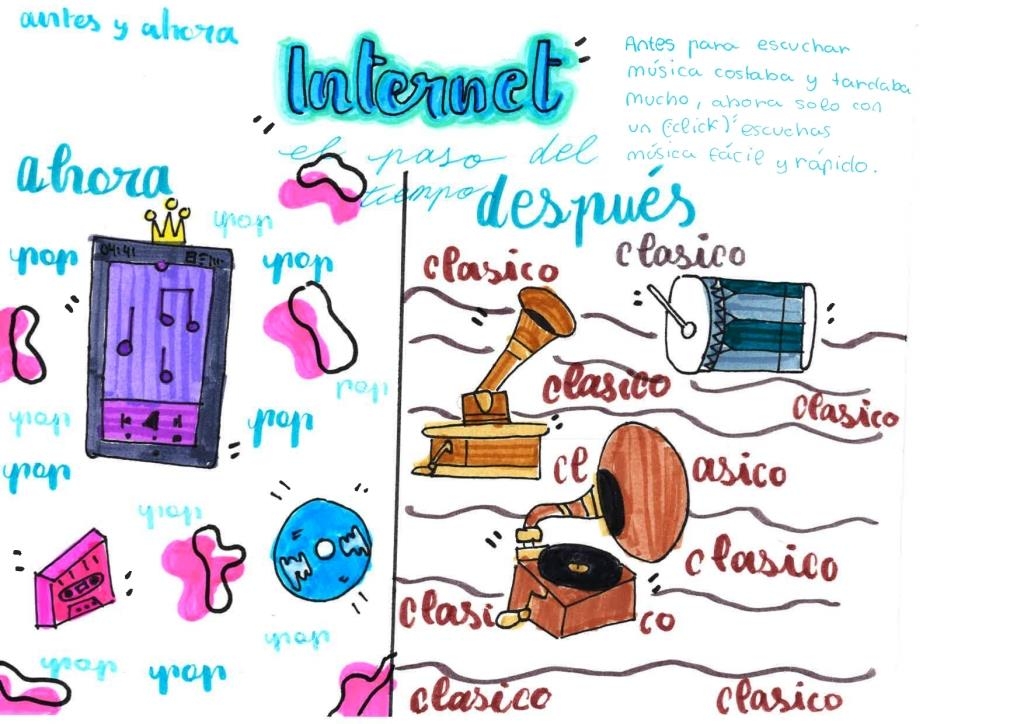 antes y ahora
Internet
Antes para escuchar
música costaba y tardaba
mucho, ahora solo con
un (click)' escuchas
música fácil y rápido.
el paso del
tiempo
ahora
después
pop
pop
pop
04:41
pop
pop
pop
pop
pop
pop
pop
pop
clasico
clasico
clasico
clasico
cl asico
clasico
clasi co
clasico
clasico